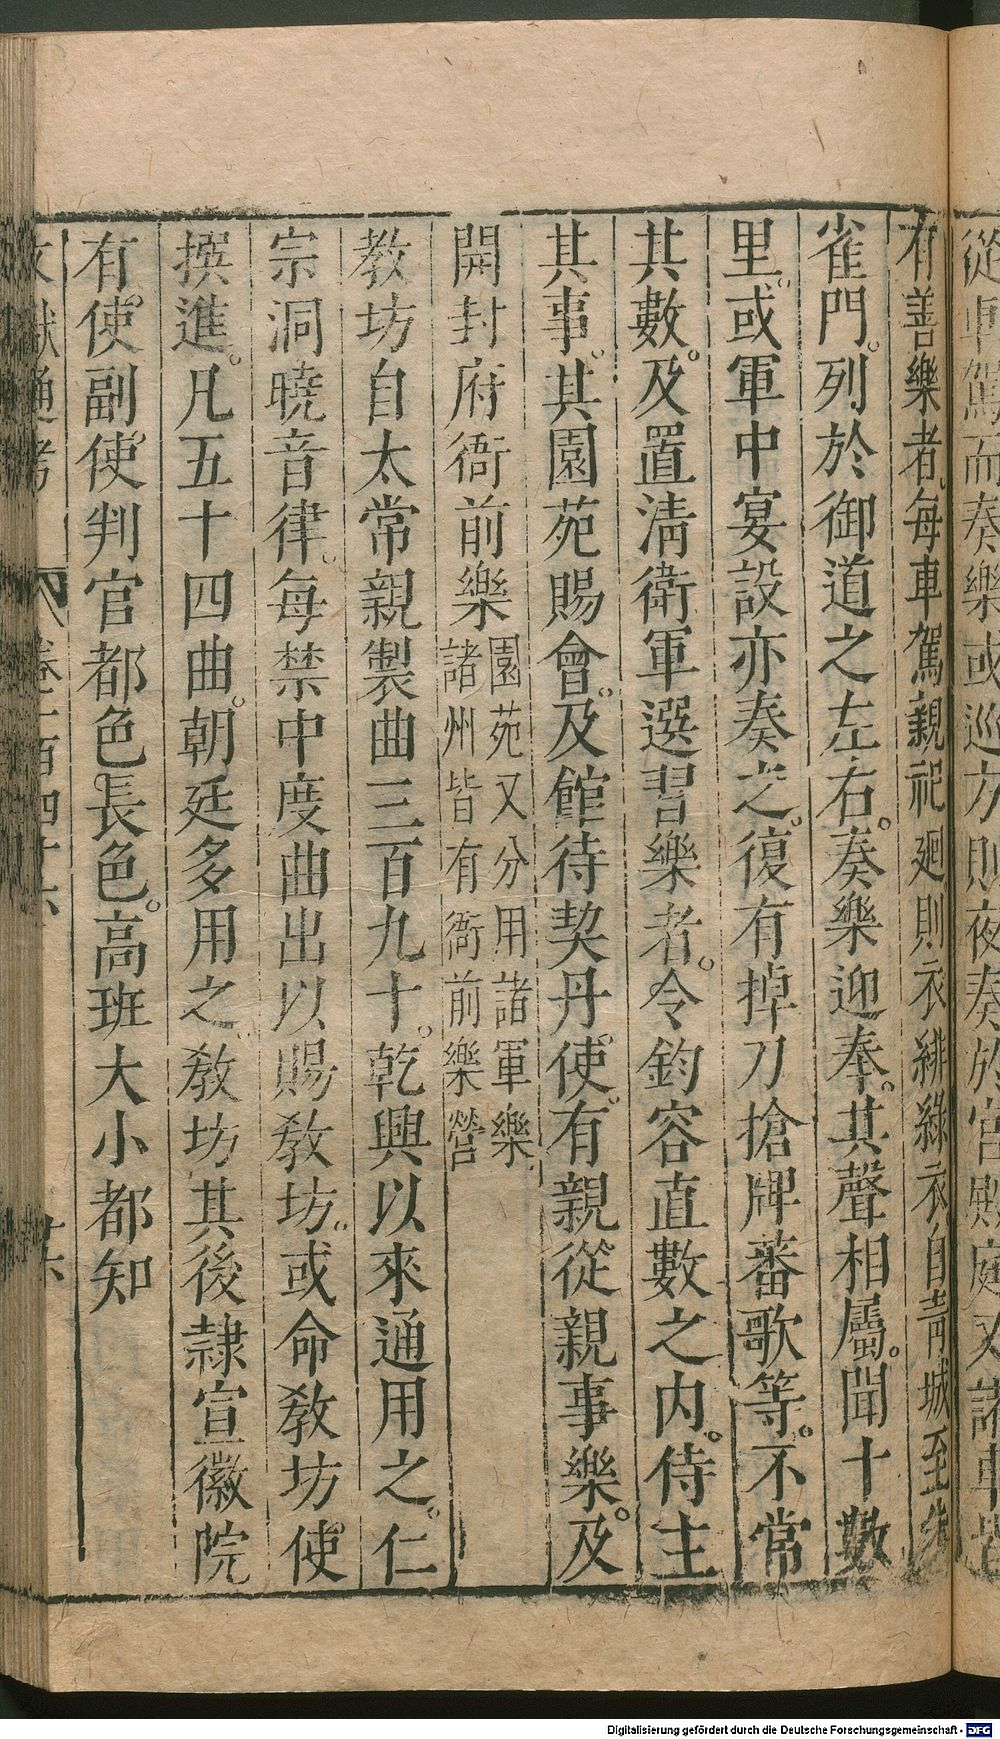 從車駕而奏樂或巡方則夜奏於宮殿庭又諸軍皆
有善樂者每車駕親祀廻則衣緋綠衣自青城至朱
雀門。列於御道之左右。奏樂迎奉。其聲相屬。聞十數
里。或軍中宴設亦奏之。復有掉刀搶牌蕃歌等。不常
其數。及置清衛軍選習樂者。令鈞容直數之內。侍主
其事。其園苑賜會。及館待契丹使。有親從親事樂。及
開封府衙前樂園苑又分用諸軍樂諸州皆有衙前樂營
教坊自太常親製曲三百九十。乾興以來通用之。仁
宗洞曉音律。每禁中度曲出以賜教坊。或命教坊使
撰進。凡五十四曲。朝廷多用之。教坊其後隸宣徽院
有使。副使。判官都色長色。高班大小都知
文獻通考 卷一百四十六 十六
Digitalisierung gefördert durch die Deutsche Forschungsgemeinschaft - DFG